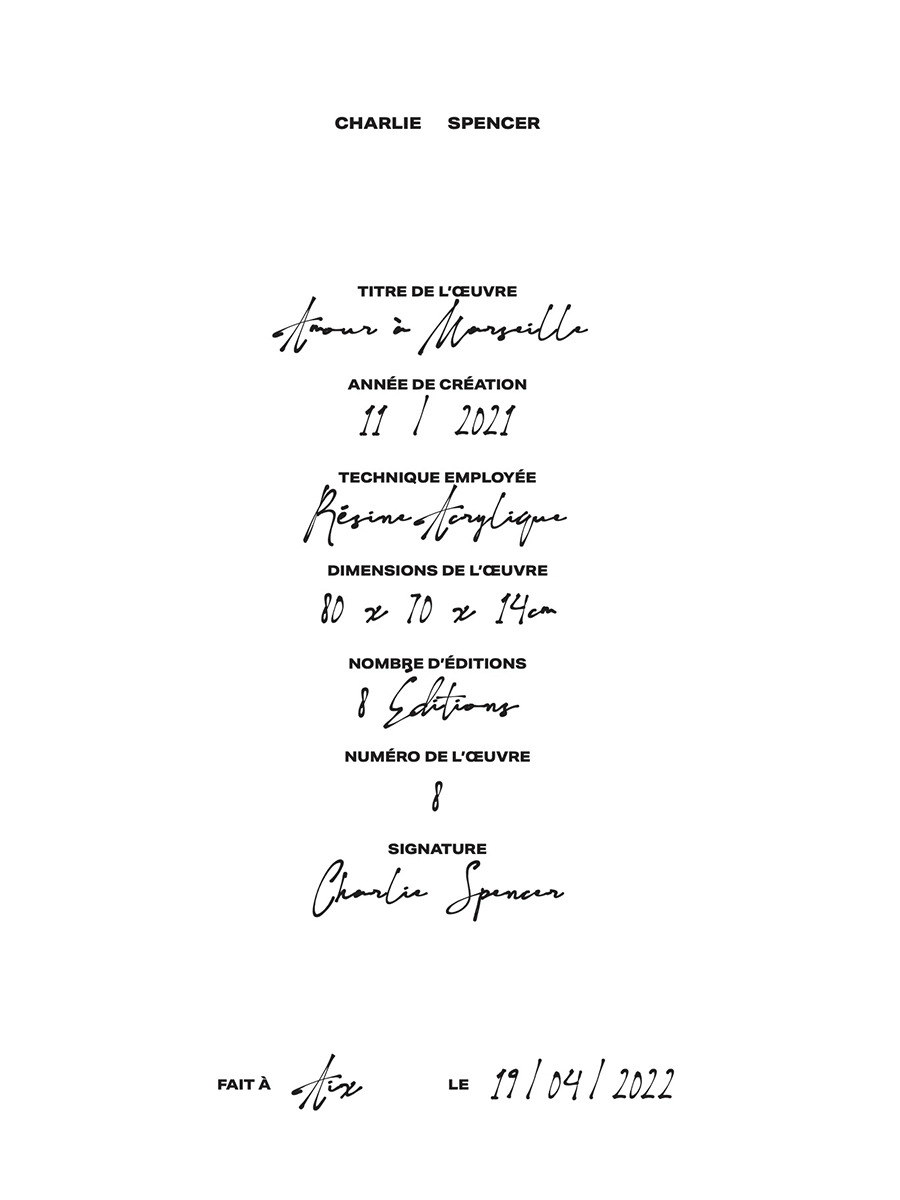 CHARLIE SPENCER
TITRE DE L'ŒUVRE
Amour à Marseille
ANNÉE DE CRÉATION
11 / 2021
TECHNIQUE EMPLOYÉE
Résine Acrylique
DIMENSIONS DE L'ŒUVRE
80 x 70 x 14cm
NOMBRE D'ÉDITIONS
8 Éditions
NUMÉRO DE L'ŒUVRE
8
SIGNATURE
Charlie Spencer
FAIT À Aix LE 19/04/2022